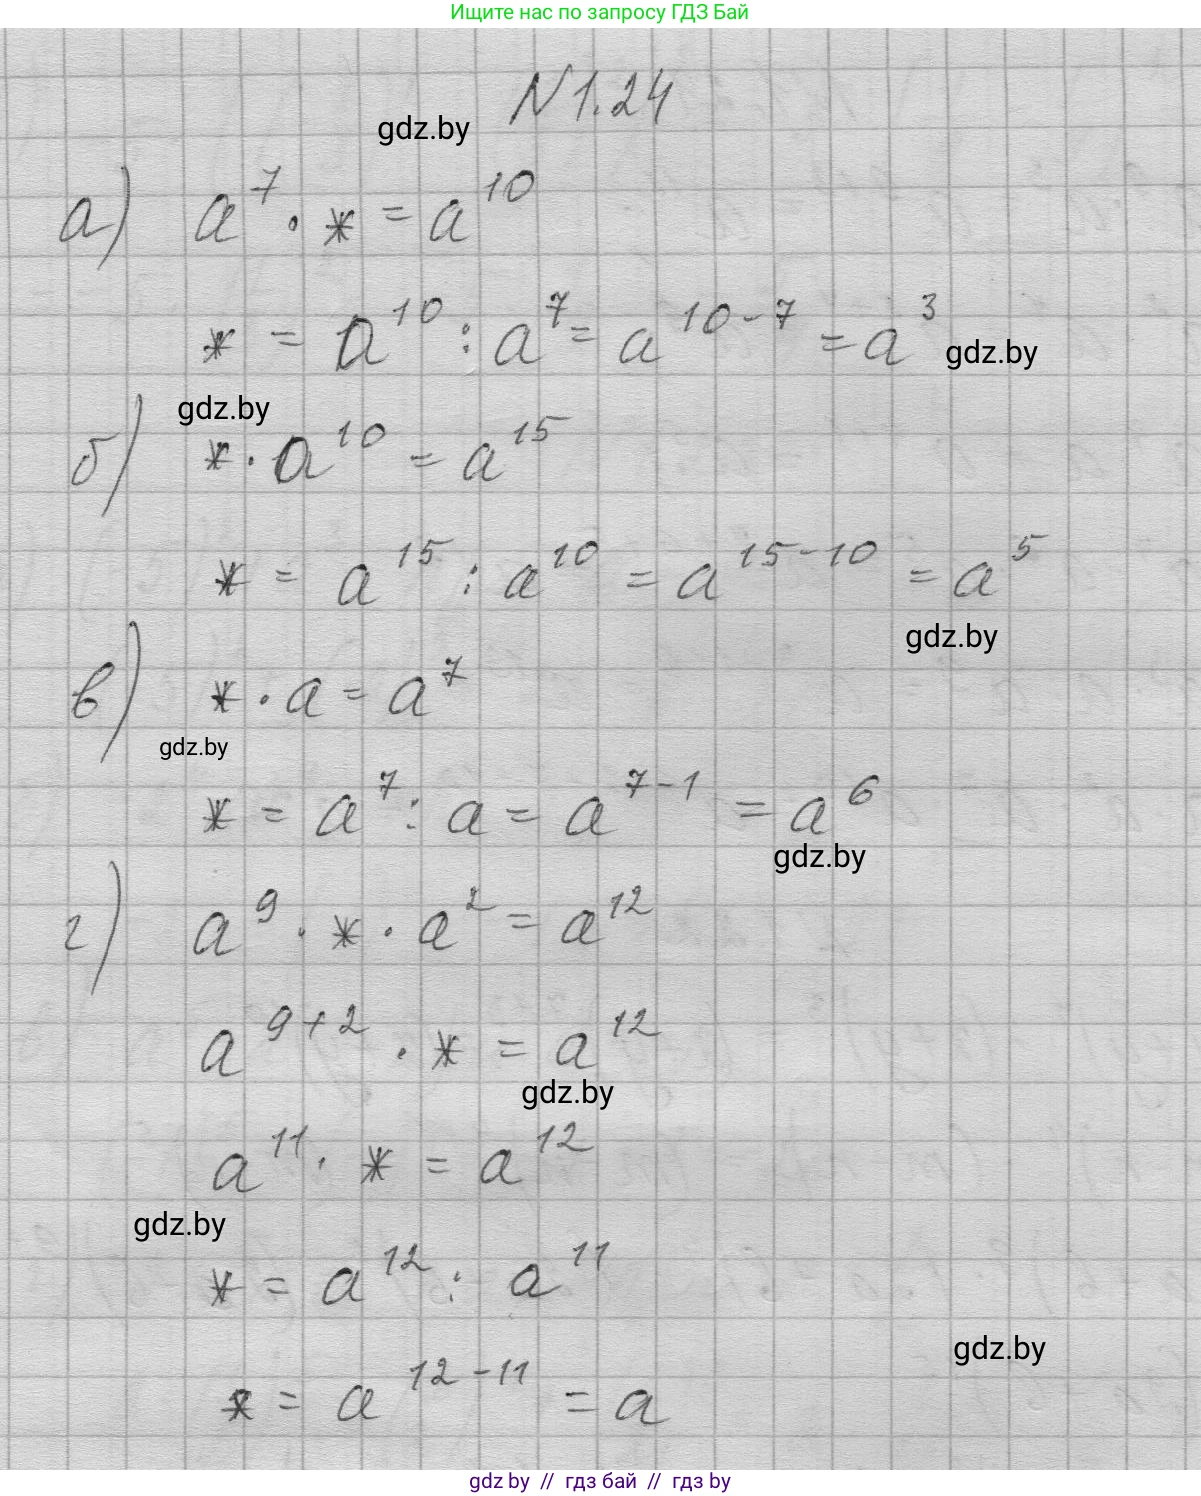 Ищите нас по запросу ГДЗ Бай
N 1.24
gdz.by
а) a^7 · * = a^10
* = a^10 : a^7 = a^10-7 = a^3
gdz.by
gdz.by
б) * · a^10 = a^15
* = a^15 : a^10 = a^15-10 = a^5
gdz.by
в) * · a = a^7
gdz.by
* = a^7 : a = a^7-1 = a^6
gdz.by
г) a^9 · * · a^2 = a^12
a^9+2 · * = a^12
gdz.by
a^11 · * = a^12
gdz.by
* = a^12 : a^11
gdz.by
* = a^12-11 = a
gdz by // гдз бай // гдз by